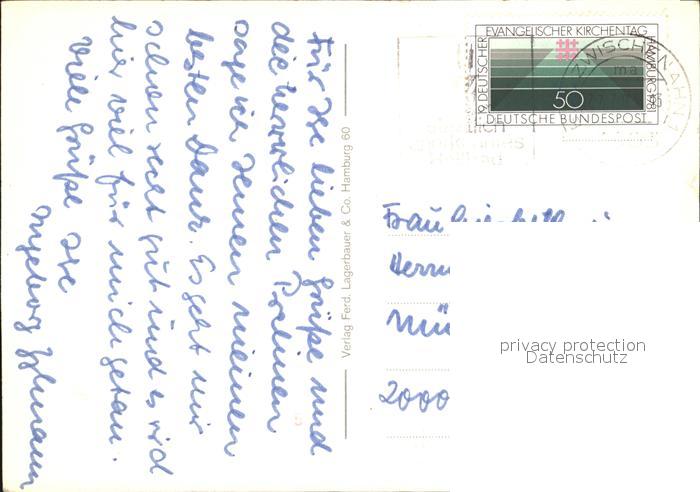 Für Ihre lieben Grüße und
die herrlichen Pralinen
sage ich Ihnen meinen
besten Dank. Es geht mir
schon recht gut und es wird
hier viel für mich getan.
Viele Grüße Ihre
Ingeborg
Verlag Ferd. Lagerbauer & Co. Hamburg 60
19. DEUTSCHER
EVANGELISCHER KIRCHENTAG
HAMBURG 1981
50
DEUTSCHE BUNDESPOST
ZWISCHENAHN 1
Frau
Herrn
Mü
2000
privacy protection
Datenschutz